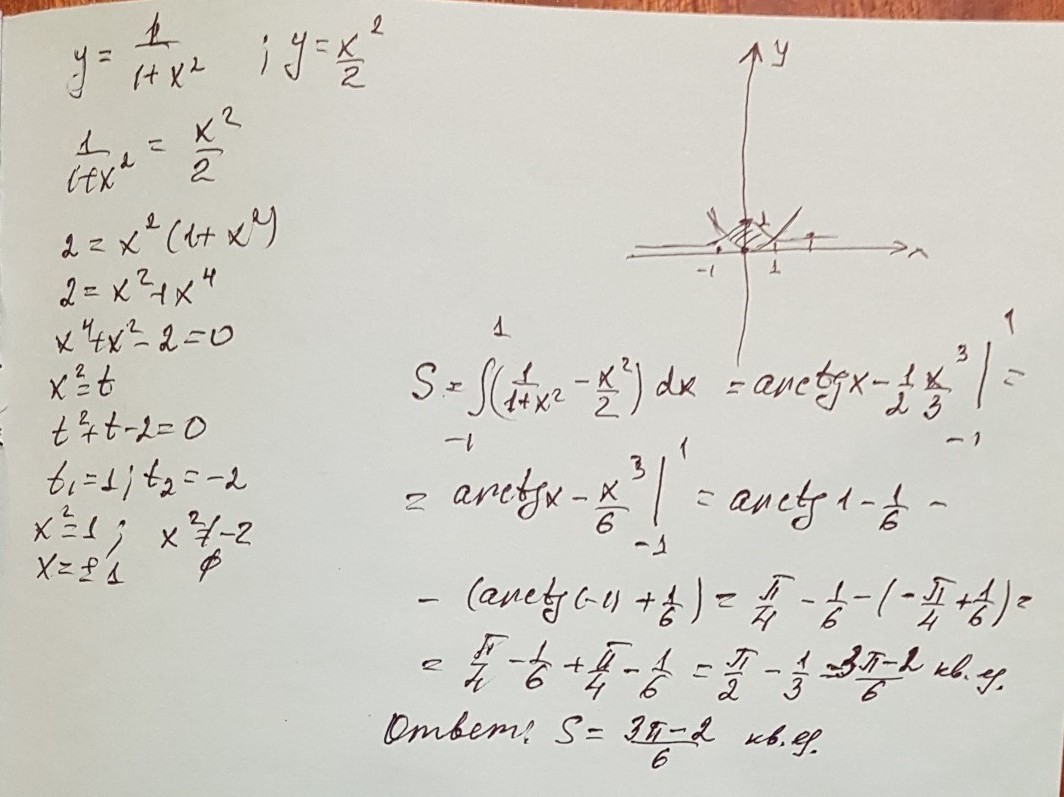 y = 1/(1+x²) ; y = x²/2
1/(1+x²) = x²/2
2 = x²(1+x²)
2 = x²+x⁴
x⁴+x²-2=0
x²=t
t²+t-2=0
t₁=1; t₂=-2
x²=1; x²≠-2
x=±1 ∅
y
1
-1 1 x
S = ∫₋₁¹ (1/(1+x²) - x²/2) dx = arctgx - 1/2 x³/3 |₋₁¹ =
= arctgx - x³/6 |₋₁¹ = arctg 1 - 1/6 -
- (arctg(-1) + 1/6) = π/4 - 1/6 - (-π/4 + 1/6) =
= π/4 - 1/6 + π/4 - 1/6 = π/2 - 1/3 = (3π-2)/6 кв. ед.
Ответ: S = (3π-2)/6 кв. ед.